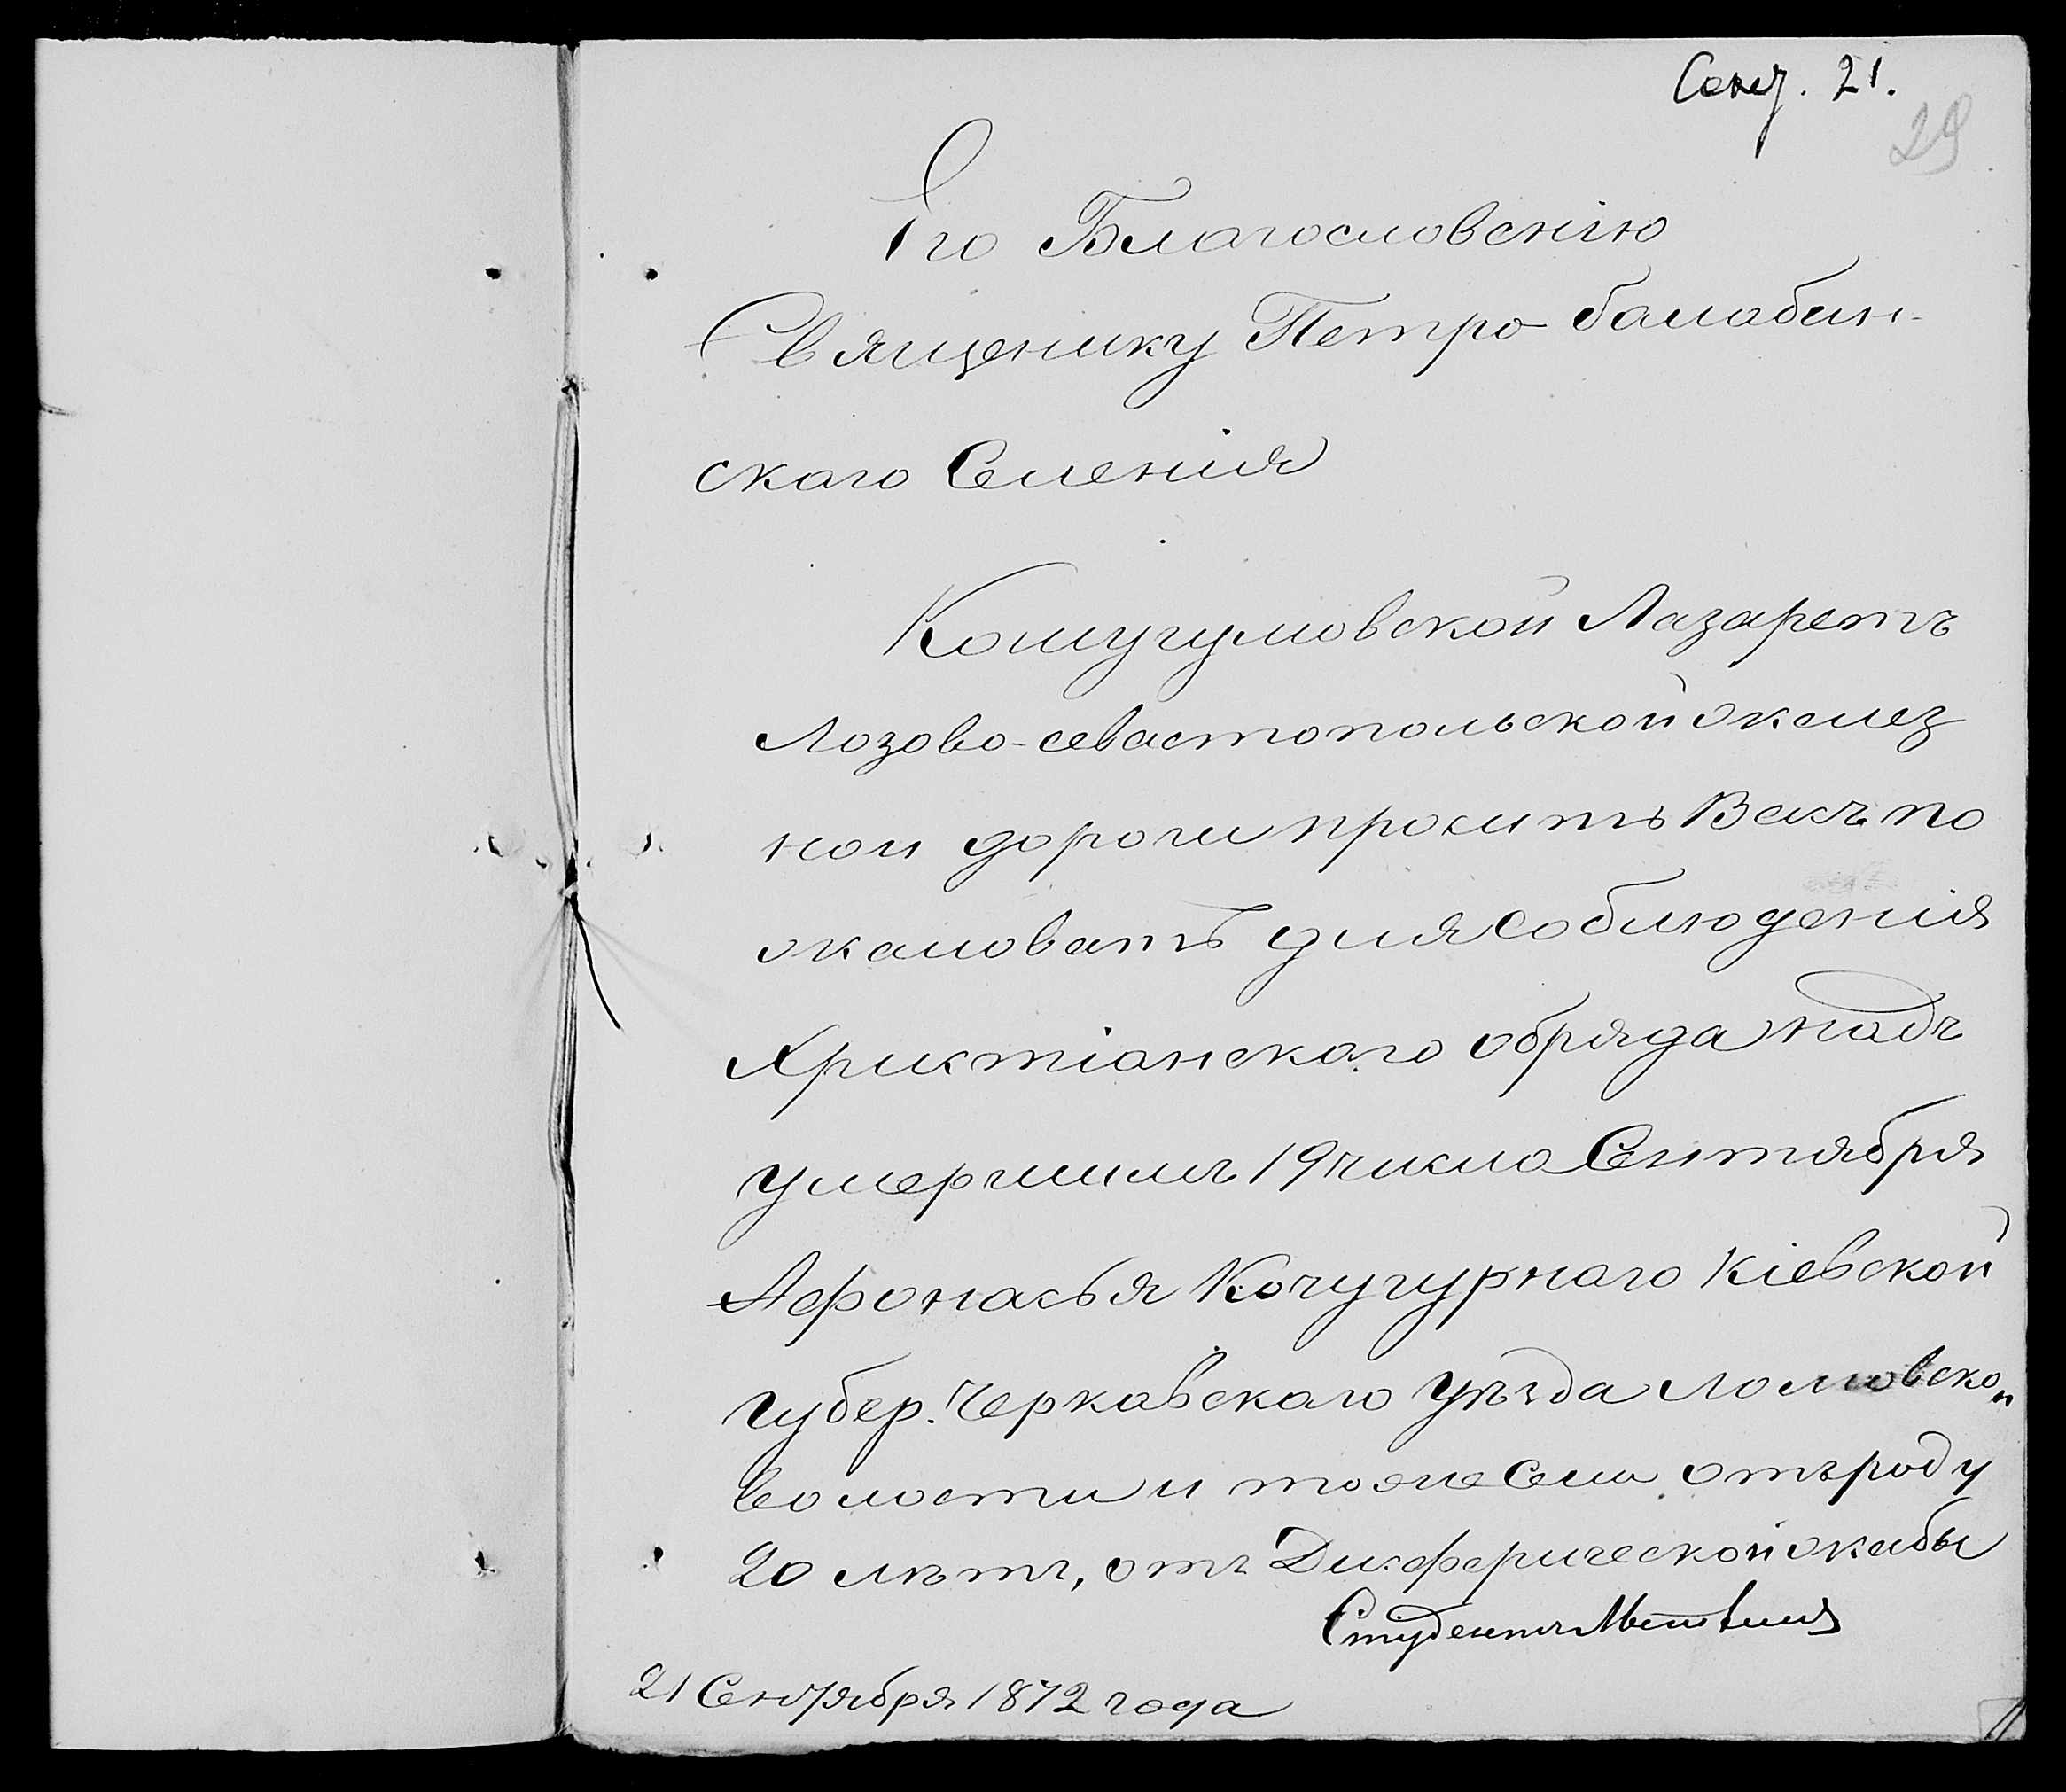 Сент. 21.
29
Его Благословенію
Священику Петро-балабин-
скаго Селенія
Комугумовской Лазаретъ
Лозово-севастопольской желез
ной дороги проситъ Васъ по
жаловатъ для соблюденія
Христіанскаго обряда надъ
умершимъ 19 число Сентября
Афонасья Кочугурнаго Кіевской
губер. Черкавскаго уѣзда Ломовской
волости и тоже Села отъ роду
20 лѣтъ, отъ Дифферической жабы
Студентъ
21 Сентября 1872 года